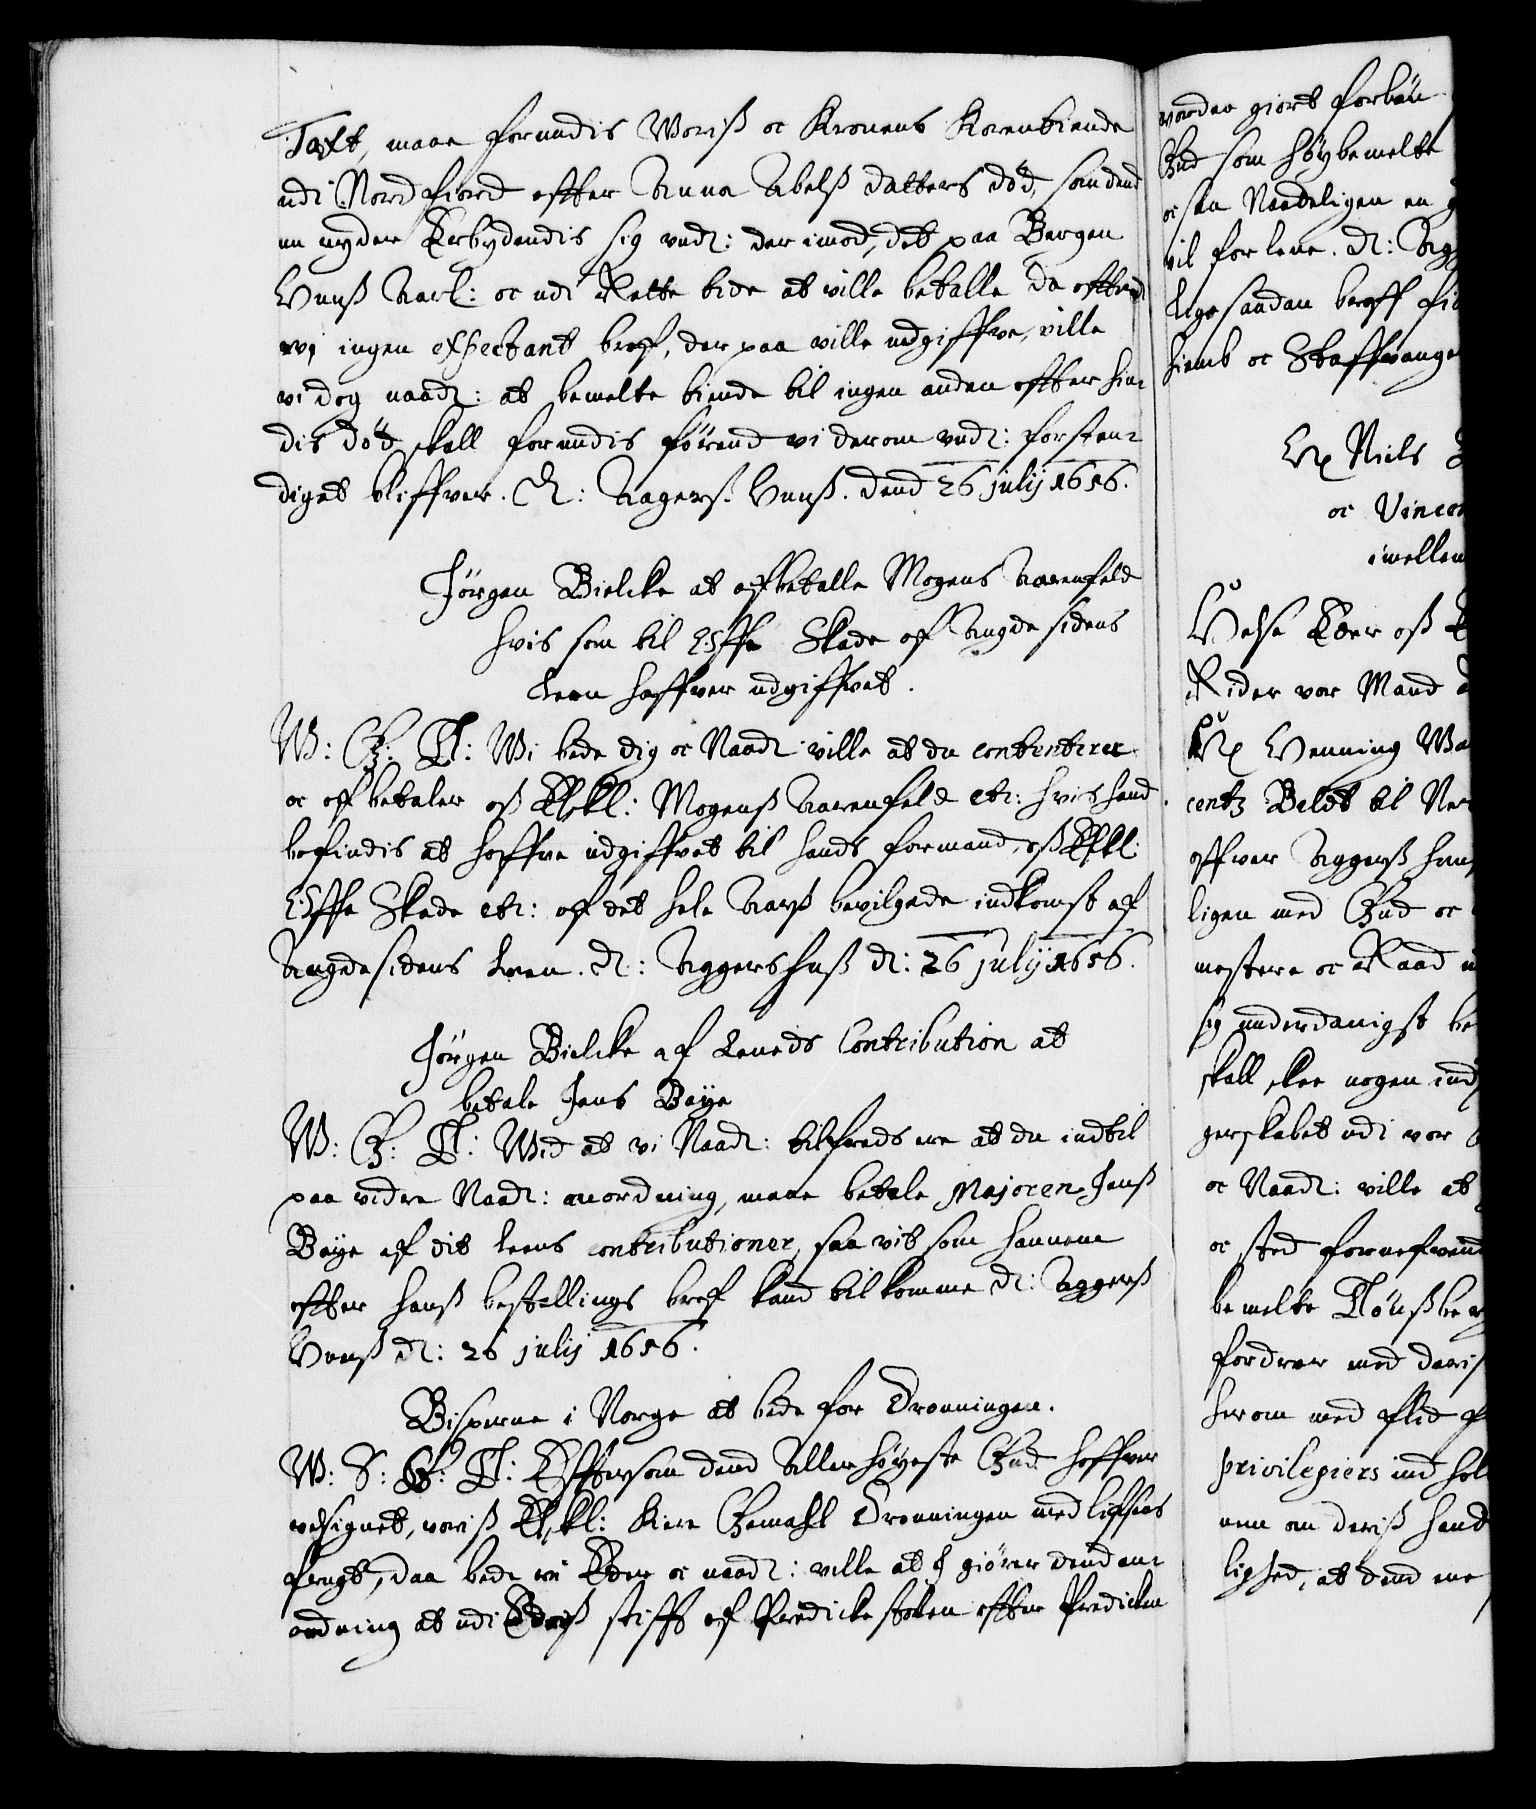 Taxt, maae forundis Woriß oc Kronens Korentiende
udi Nordfiord efter Anna Abelß datters død, som dend
nu nyder Erbydendis sig und: der imod, det paa Bergen
Huuß Aarl: oc udi Rette tide at ville betalle Da efterd
wi ingen expectant bref, der paa ville udgiffve, ville
vi dog naad: at bemelte tiende til ingen anden efter hin-
dis død skall forundis førend vi derom und: forsten-
diget bliffver. D: Aagers Huuß. dend 26 julij 1656.
Jørgen Bielcke at afbetalle Mogens Aarenfeld
hvis som til Effe Skade af Augde sidens
Leen haffver udgiffvet.
W: G: T: Wi bede dig oc Naad: ville at du contenterer
oc af betaler oß Elskl: Mogenß Aarenfeld etc: hvis hand
befindis at haffve udgiffvet til hands formand, oß Elskl:
Effe Skade etc: af det hele Aarß bevilgede indkomst af
Augdesidens Leen. D: Aggershuß d: 26 julij 1656.
Jørgen Bielcke af Leneds Contribution at
betale Jens Baye
W: G: T: Wid at vi Naad: tilfreds ere at du indtil
paa vidre Naad: anordning, maae betale Majoren Jenß
Baye af dit leens contributioner, saa vit som hannem
efter hanß bestallings bref kand tilkomme d: Aggerß
Huuß d: 26 julij 1656.
Bisperne i Norge at bede for Dronningen.
W: S: G: T: Eftersom dend Allerhøyeste Gud haffver
velsignet, voriß Elskl: Kiere Gemahl Dronningen med lifsens
frugt, daa bede wi Eder oc naad: ville at I giører dend an-
ordning at udi Ederß stift af Predickestolen efter Predicken
vorden giort forbøn
Gud som høybemelte
oc saa Naadeligen en
vil forlene. d: Agg
Lige saadan breff fi
hiemb oc Staffvange
Hr Niels
oc Vincen
imellem
Helse Eder oß
Rider vor Mand
Hr Henning Wa
centz Bildt til Ne
offver Aggerß huu
ligen med Gud oc
mestere oc Raad u
sig underdanigst be
skall skee nogen ind
gerskabet udi vor
oc Naad: ville at
oc sted fornefvend
bemelte Tønßberg
fordrer med deriß
herom med flid f
privilegiers ind hol
nem om deriß hand
lighed, at dend ene